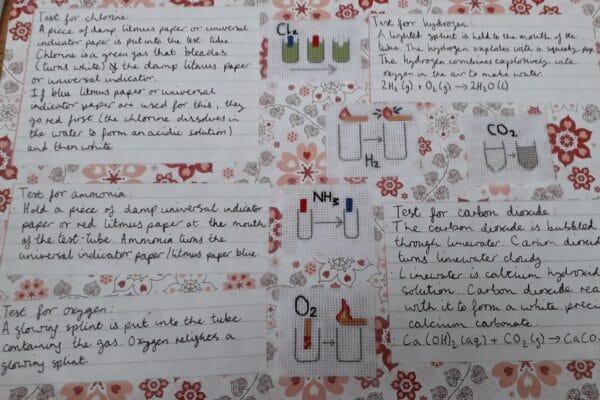 Test for chlorine:
A piece of damp litmus paper or universal
indicator paper is put into the test-tube.
Chlorine is a green gas that bleaches
(turns white) the damp litmus paper
or universal indicator.
If blue litmus paper or universal
indicator paper are used for this, they
go red first (the chlorine dissolves in
the water to form an acidic solution)
and then white
Cl₂
Test for hydrogen:
A lighted splint is held to the mouth of the
tube. The hydrogen explodes with a squeaky pop.
The hydrogen combines explosively with
oxygen in the air to make water.
2H₂(g) + O₂(g) → 2H₂O(l)
H₂
CO₂
Test for ammonia:
Hold a piece of damp universal indicator
paper or red litmus paper at the mouth
of the test-tube. Ammonia turns the
universal indicator paper/litmus paper blue.
NH₃
Test for carbon dioxide:
The carbon dioxide is bubbled
through limewater. Carbon dioxide
turns limewater cloudy.
Limewater is calcium hydroxide
solution. Carbon dioxide rea
with it to form a white preci
calcium carbonate.
Ca(OH)₂(aq) + CO₂(g) → CaCO
Test for oxygen:
A glowing splint is put into the tube
containing the gas. Oxygen relights a
glowing splint.
O₂